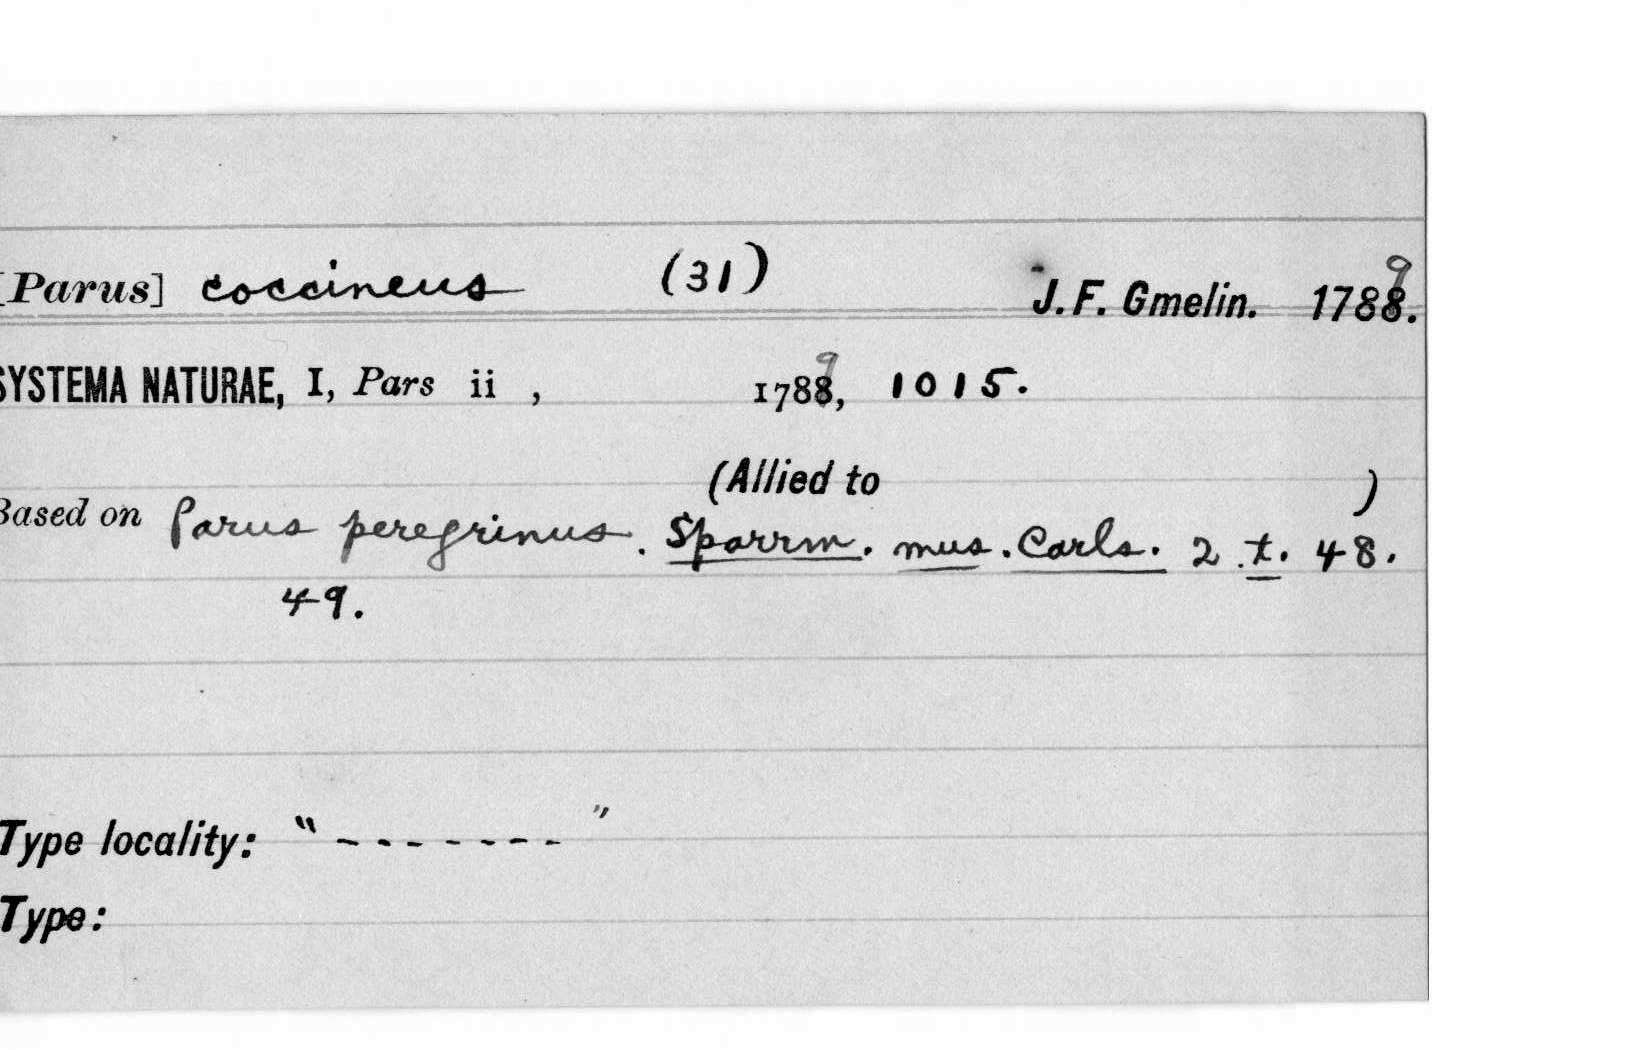 [Parus] coccineus (31) J. F. Gmelin. 1789.
SYSTEMA NATURAE, I, Pars ii , 1789, 1015.
(Allied to )
Based on Parus peregrinus. Sparrm. mus. Carls. 2. t. 48.
49.
Type locality: "-------"
Type: